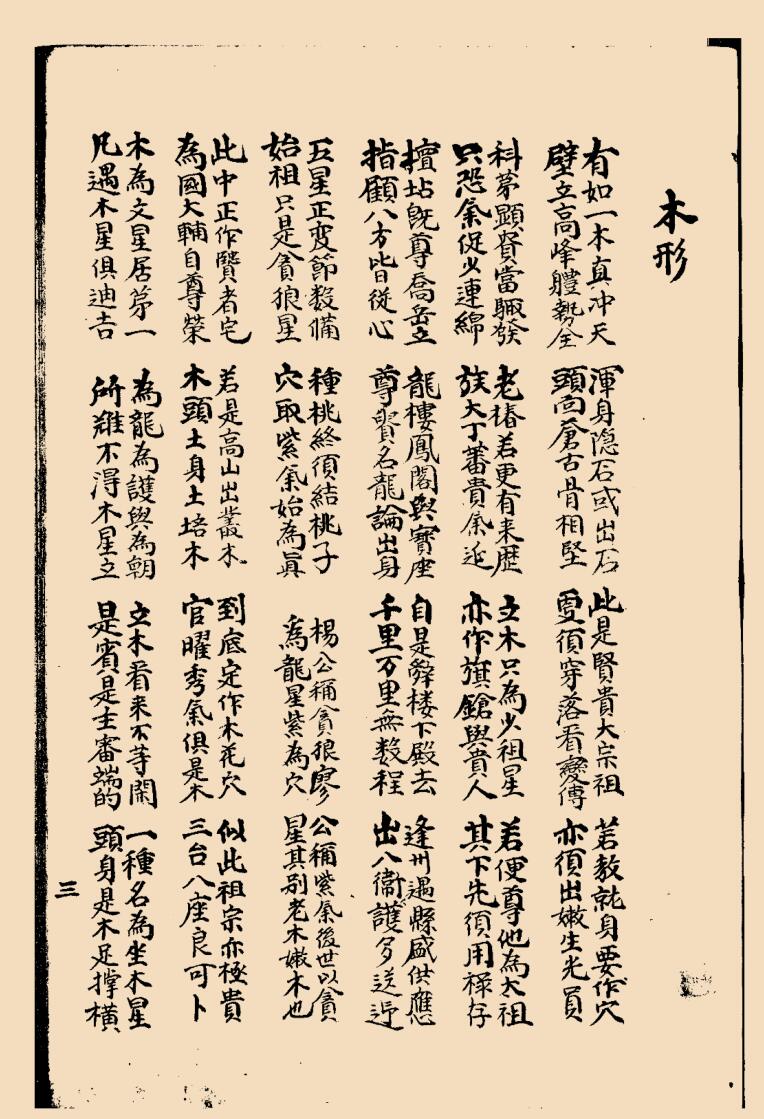 木形
有如一木真冲天
壁立高峰體勢全
渾身隐石或出石
頭面蒼古骨相堅
此是賢貴大宗祖
更須穿落看變傳
若教就身要作穴
亦須出嫩生光員
科苐顕賢當驟發
只恐氣促少連綿
老椿若更有来歷
族大丁蕃貴氣延
立木只為少祖星
亦作旗鎗與貴人
若便尊他為太祖
其下先須用禄存
擅坫旣尊喬岳立
指顧八方皆従心
龍樓鳳閣與寶座
尊貴名龍論出身
自是辤楼下殿去
千里万里無数程
逢州遇縣盛供應
出入衛護多送迎
五星正变節数備
始祖只是貪狼星
種桃終須結桃子
穴取紫氣始為眞
楊公稱貪狼廖公稱紫氣後世以貪
為龍星紫為穴星其别老木嫩木也
此中正作賢者宅
為國大輔自尊榮
若是高山出叢木
木頭土身土培木
到底定作木花穴
官曜秀氣俱是木
似此祖宗亦極貴
三台八座良可卜
木為文星居苐一
凡遇木星俱迪吉
為龍為護與為朝
所难不淂木星立
立木看来不等閑
是賓是主審端的
一種名為坐木星
頭身是木足撑橫
三